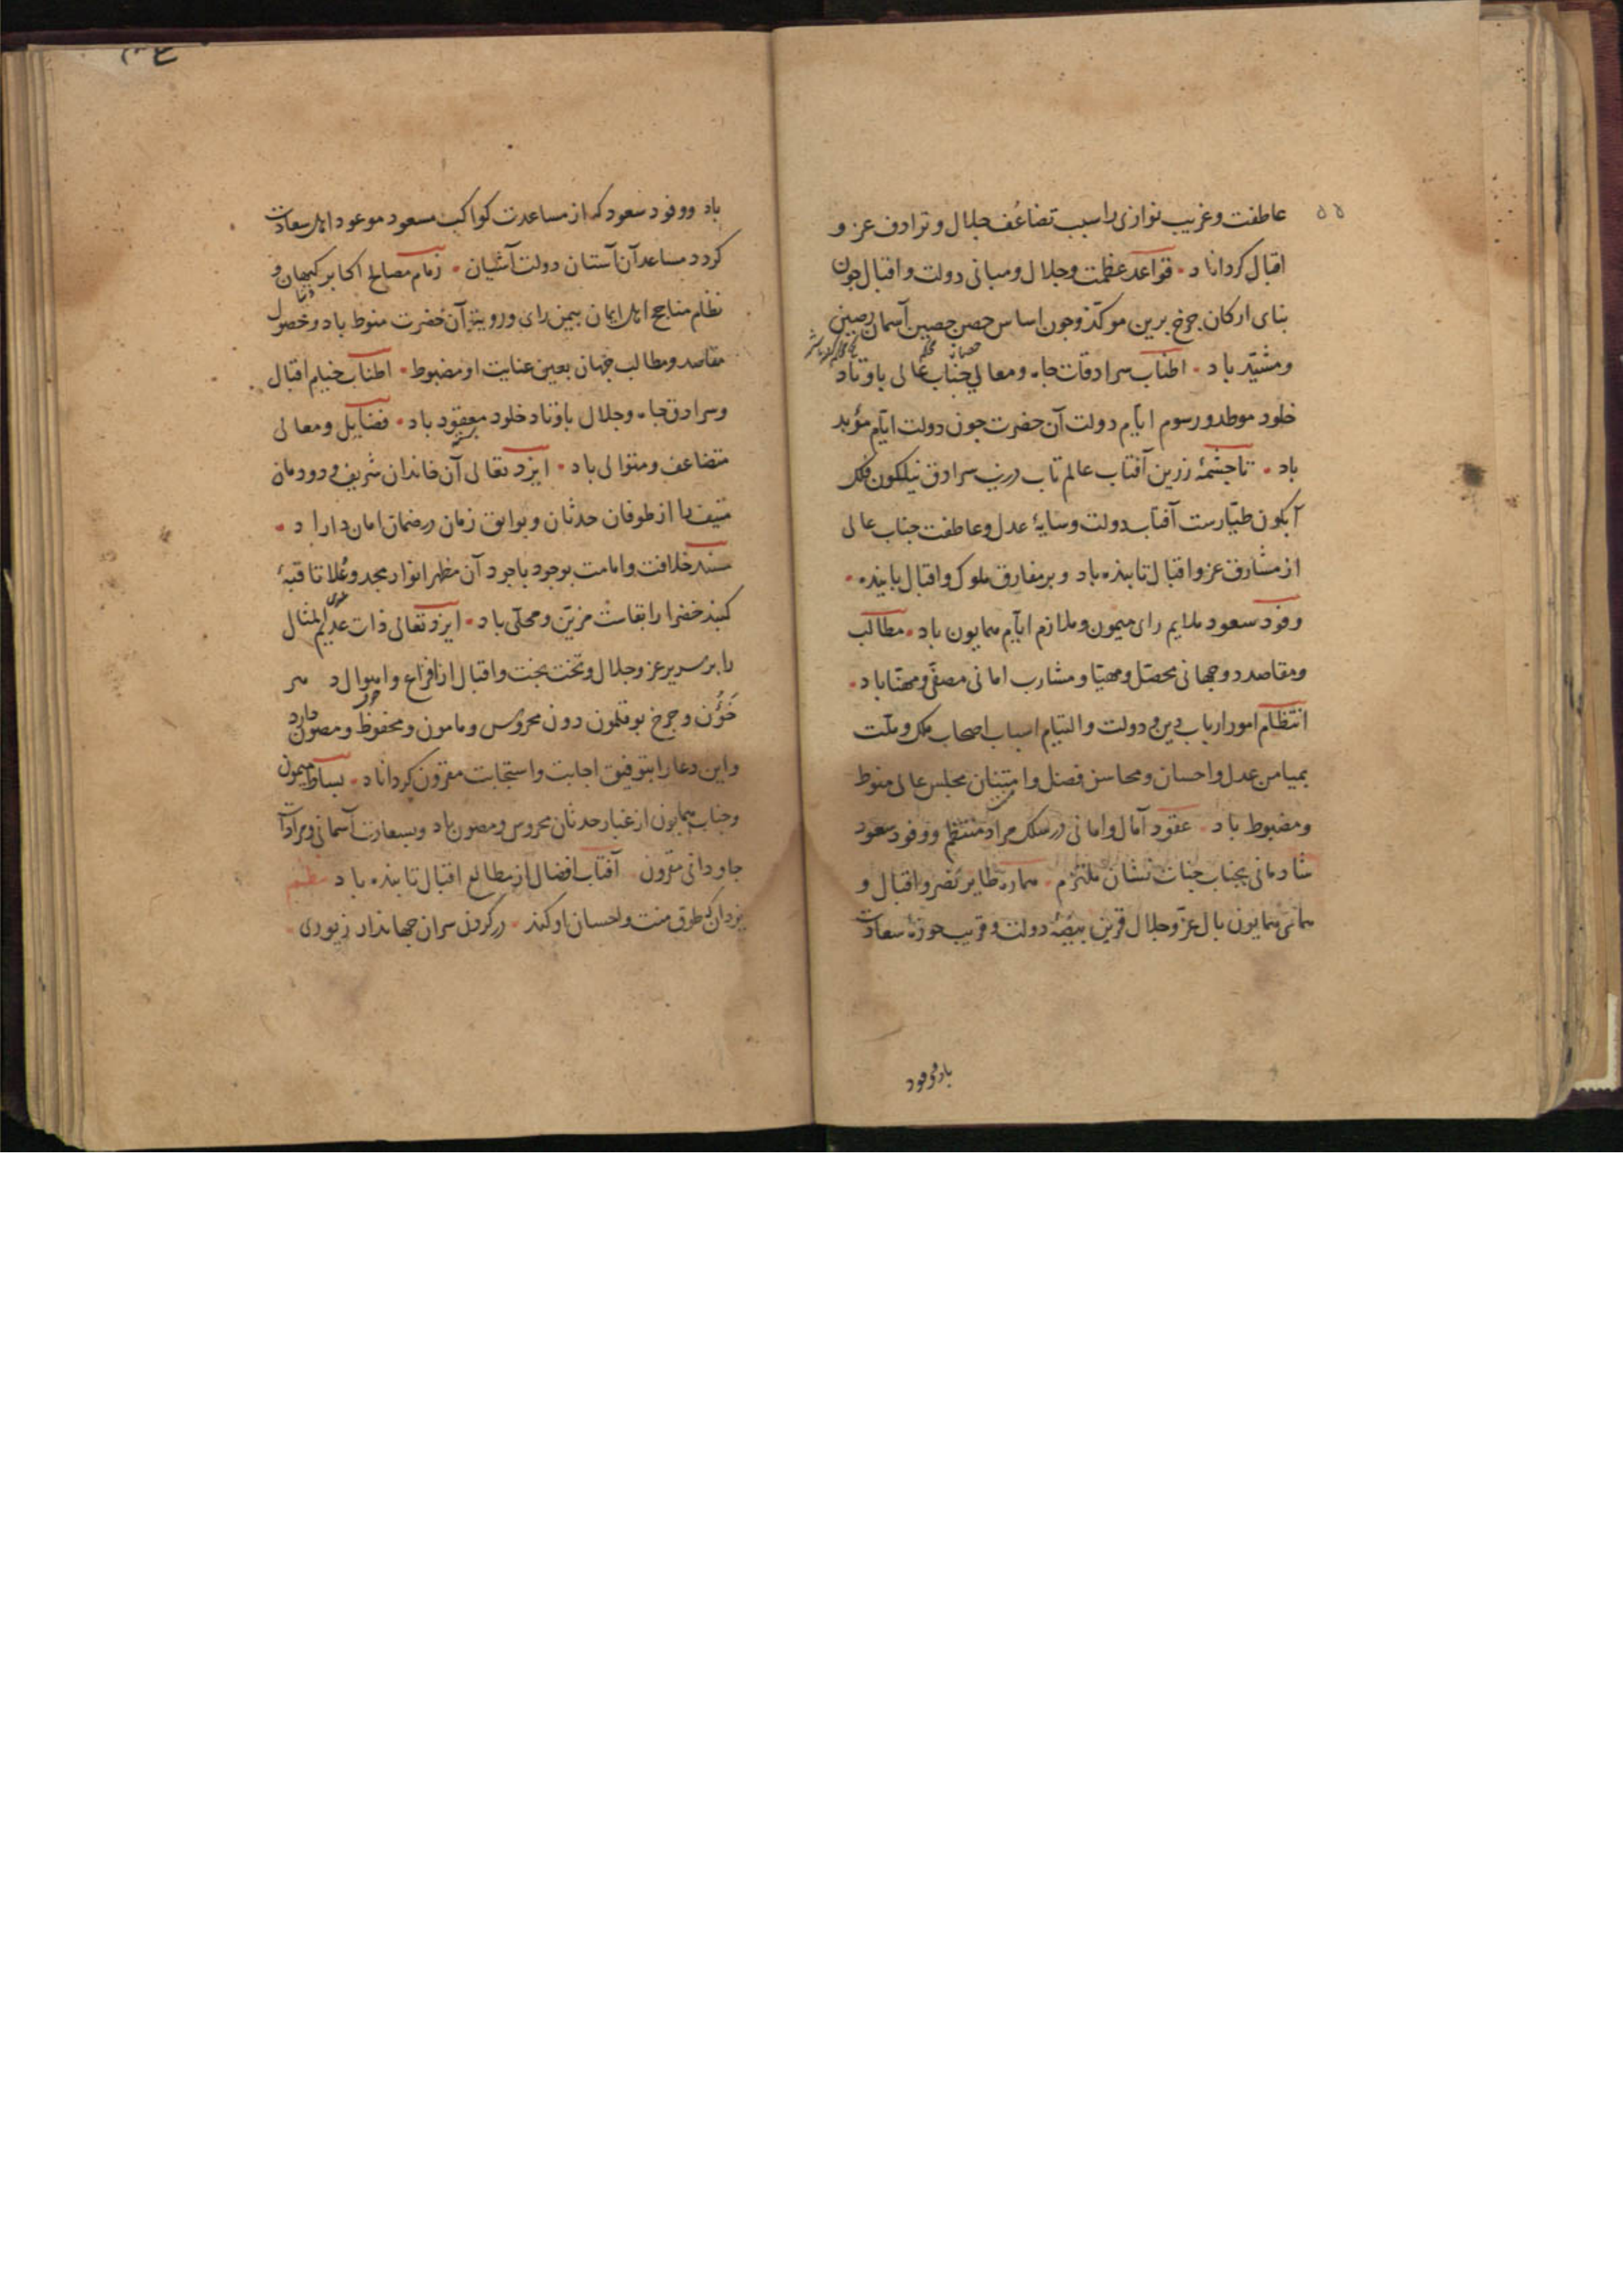 عاطفت وغریب نوازی را سبب تضاعُف جلال و ترادف عز و
اقبال کرداناد • قواعد عظمت وجلال ومبانی دولت و اقبال چون
بنای ارکان چرخ برین موکّد وچون اساس حصن حصین آسمان رصین
ومشیّد باد • اطناب سرادقات جاه ومعالی جناب عالی باوتاد
خلود موطد ورسوم ایّام دولت آن حضرت چون دولت ایّام مؤبد
باد • تا چشمهٔ زرین آفتاب عالم تاب درین سرادق نیلکون فلک
آبکون طیّارست آفتاب دولت وسایهٔ عدل وعاطفت جناب عالی
از مشارق عز و اقبال تابنده باد و بر مفارق ملوک واقبال پاینده •
وفود سعود ملایم رای میمون و ملازم ایّام همایون باد • مطالب
ومقاصد دوجهانی محصّل ومهیّا و مشارب امانی مصفّی ومهنّا باد •
انتظام امور ارباب دین و دولت و التیام اسباب اصحاب ملک و ملّت
بمیامن عدل واحسان ومحاسن فضل وامتنان مجلس عالی منوط
ومضبوط باد • عقود آمال وامانی در سلک مراد منتظم ووفود سعود
شادمانی بجناب جنات نشان ملتزم • همواره طایر نصر و اقبال و
همای همایون بال عزّ و جلال قرین بیضهٔ دولت و قریب حوزهٔ سعادت
باد و وفود
باد ووفود سعود که از مساعدت کواکب مسعود موعود اهل سعادت
کردد مساعد آن آستان دولت آشیان • زمام مصالح اکابر کیهان و
نظام مناجح اهل ایمان بیمن رای ورویت آن حضرت منوط باد وحصول
مقاصد ومطالب جهان بعین عنایت او مضبوط • اطناب خیام اقبال
وسرادق جاه وجلال باوتاد خلود معقود باد • فضایل ومعالی
متضاعف ومتوالی باد • ایزد تعالی آن خاندان شریف و دودمان
منیف را از طوفان حدثان و بوایق زمان در ضمان امان داراد •
مسند خلافت وامامت بوجود باجود آن مظهر انوار مجد وعُلا تا قبهٔ
کنبد خضرا را بقاست مزیّن ومحلّی باد • ایزد تعالی ذات عدیم المثال
را بر سریر عز وجلال وتخت بخت واقبال از افزاع و اهوال دهر
خؤُن و چرخ بوقلمون دون محروس ومامون ومحفوظ ومصون داراد
واین دعا را بتوفیق اجابت واستجابت مقرون کرداناد • بساط میمون
وجناب همایون از غبار حدثان محروس ومصون باد وبسعادت آسمانی ومرادات
جاودانی مقرون • آفتاب افضال از مطالع اقبال تابنده باد نظم
یزدان که طوق منت واحسان او کند • در کردن سران جهاندار زیوری •